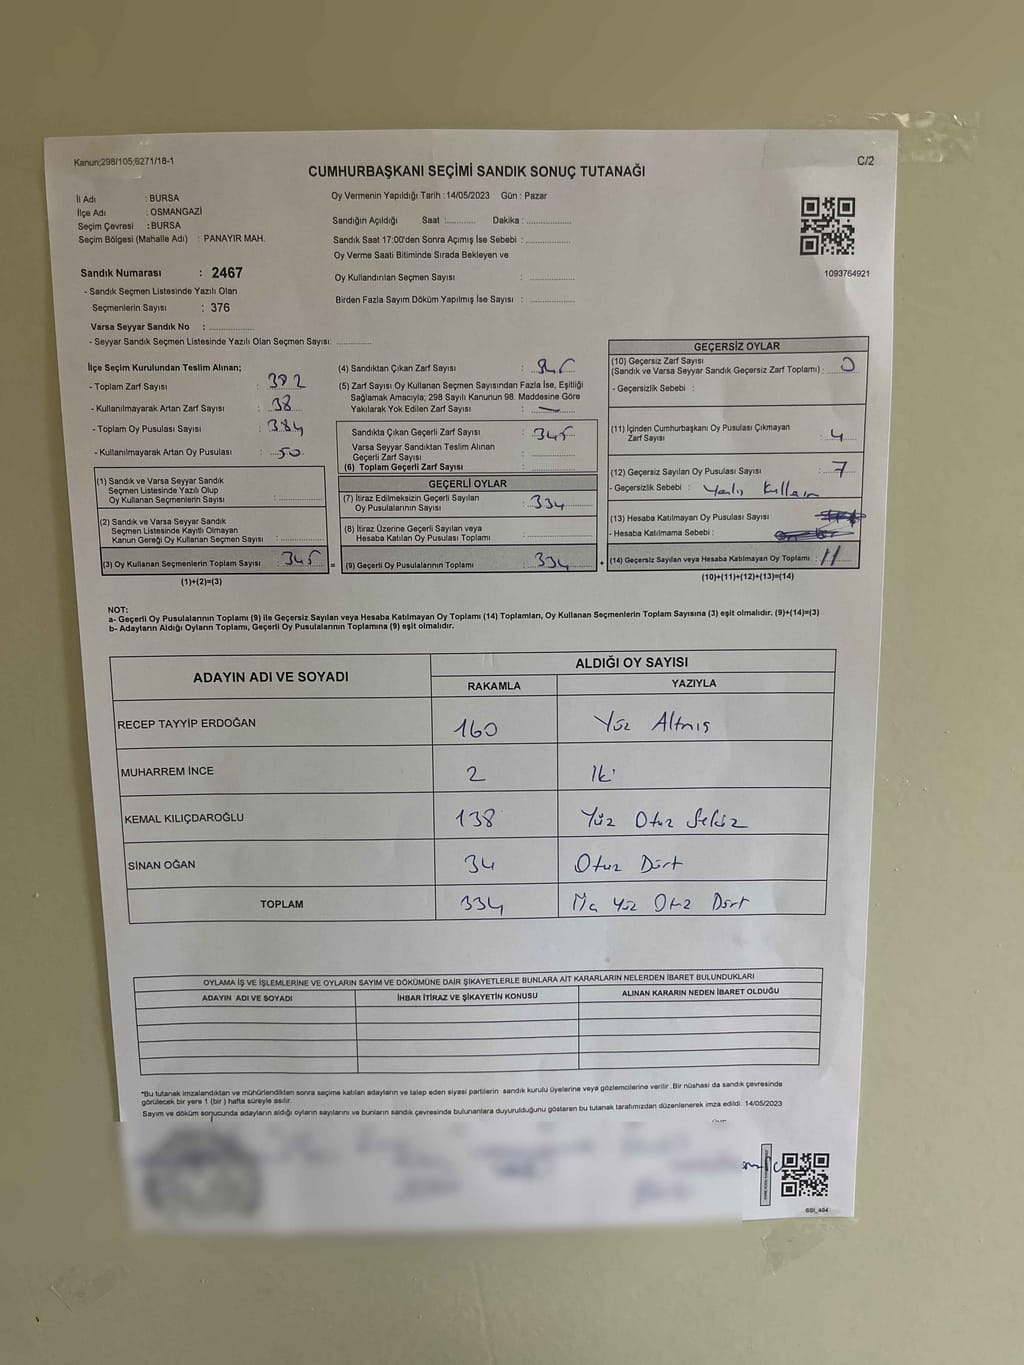 Kanun;298/105;6271/18-1
C/2
CUMHURBAŞKANI SEÇİMİ SANDIK SONUÇ TUTANAĞI
İl Adı : BURSA
İlçe Adı : OSMANGAZİ
Seçim Çevresi : BURSA
Seçim Bölgesi (Mahalle Adı) : PANAYIR MAH.
Oy Vermenin Yapıldığı Tarih : 14/05/2023 Gün : Pazar
Sandığın Açıldığı Saat :........... Dakika :................
Sandık Saat 17:00'den Sonra Açımış İse Sebebi :................
Oy Verme Saati Bitiminde Sırada Bekleyen ve
Oy Kullandırılan Seçmen Sayısı : ................
Birden Fazla Sayım Döküm Yapılmış İse Sayısı : ................
1093764921
Sandık Numarası : 2467
- Sandık Seçmen Listesinde Yazılı Olan
Seçmenlerin Sayısı : 376
Varsa Seyyar Sandık No : ................
- Seyyar Sandık Seçmen Listesinde Yazılı Olan Seçmen Sayısı: ............
İlçe Seçim Kurulundan Teslim Alınan;
- Toplam Zarf Sayısı : 382
- Kullanılmayarak Artan Zarf Sayısı : 38
- Toplam Oy Pusulası Sayısı : 384
- Kullanılmayarak Artan Oy Pusulası : 50
(1) Sandık ve Varsa Seyyar Sandık
Seçmen Listesinde Yazılı Olup
Oy Kullanan Seçmenlerin Sayısı :
(2) Sandık ve Varsa Seyyar Sandık
Seçmen Listesinde Kayıtlı Olmayan
Kanun Gereği Oy Kullanan Seçmen Sayısı :
(3) Oy Kullanan Seçmenlerin Toplam Sayısı : 345
(1)+(2)=(3)
(4) Sandıktan Çıkan Zarf Sayısı : 345
(5) Zarf Sayısı Oy Kullanan Seçmen Sayısından Fazla İse, Eşitliği
Sağlamak Amacıyla; 298 Sayılı Kanunun 98. Maddesine Göre
Yakılarak Yok Edilen Zarf Sayısı : —
Sandıkta Çıkan Geçerli Zarf Sayısı : 345
Varsa Seyyar Sandıktan Teslim Alınan
Geçerli Zarf Sayısı :
(6) Toplam Geçerli Zarf Sayısı :
GEÇERLİ OYLAR
(7) İtiraz Edilmeksizin Geçerli Sayılan
Oy Pusulalarının Sayısı : 334
(8) İtiraz Üzerine Geçerli Sayılan veya
Hesaba Katılan Oy Pusulası Toplamı :
= (9) Geçerli Oy Pusulalarının Toplamı : 334 +
GEÇERSİZ OYLAR
(10) Geçersiz Zarf Sayısı
(Sandık ve Varsa Seyyar Sandık Geçersiz Zarf Toplamı) : 0
- Geçersizlik Sebebi :
(11) İçinden Cumhurbaşkanı Oy Pusulası Çıkmayan
Zarf Sayısı : 4
(12) Geçersiz Sayılan Oy Pusulası Sayısı : 7
- Geçersizlik Sebebi :
(13) Hesaba Katılmayan Oy Pusulası Sayısı
- Hesaba Katılmama Sebebi :
(14) Geçersiz Sayılan veya Hesaba Katılmayan Oy Toplamı : 11
(10)+(11)+(12)+(13)=(14)
NOT:
a- Geçerli Oy Pusulalarının Toplamı (9) ile Geçersiz Sayılan veya Hesaba Katılmayan Oy Toplamı (14) Toplamları, Oy Kullanan Seçmenlerin Toplam Sayısına (3) eşit olmalıdır. (9)+(14)=(3)
b- Adayların Aldığı Oyların Toplamı, Geçerli Oy Pusulalarının Toplamına (9) eşit olmalıdır.
ADAYIN ADI VE SOYADI ALDIĞI OY SAYISI
RAKAMLA YAZIYLA
RECEP TAYYİP ERDOĞAN 160 Yüz Altmış
MUHARREM İNCE 2 İki
KEMAL KILIÇDAROĞLU 138 Yüz Otuz Sekiz
SİNAN OĞAN 34 Otuz Dört
TOPLAM 334 Yüz Otuz Dört
OYLAMA İŞ VE İŞLEMLERİNE VE OYLARIN SAYIM VE DÖKÜMÜNE DAİR ŞİKAYETLERLE BUNLARA AİT KARARLARIN NELERDEN İBARET BULUNDUKLARI
ADAYIN ADI VE SOYADI İHBAR İTİRAZ VE ŞİKAYETİN KONUSU ALINAN KARARIN NEDEN İBARET OLDUĞU
*Bu tutanak imzalandıktan ve mühürlendikten sonra seçime katılan adayların ve talep eden siyasi partilerin sandık kurulu üyelerine veya gözlemcilerine verilir .Bir nüshası da sandık çevresinde
görülecek bir yere 1 (bir ) hafta süreyle asılır.
Sayım ve döküm sonucunda adayların aldığı oyların sayılarını ve bunların sandık çevresinde bulunanlara duyurulduğunu gösteren bu tutanak tarafımızdan düzenlenerek imza edildi. 14/05/2023